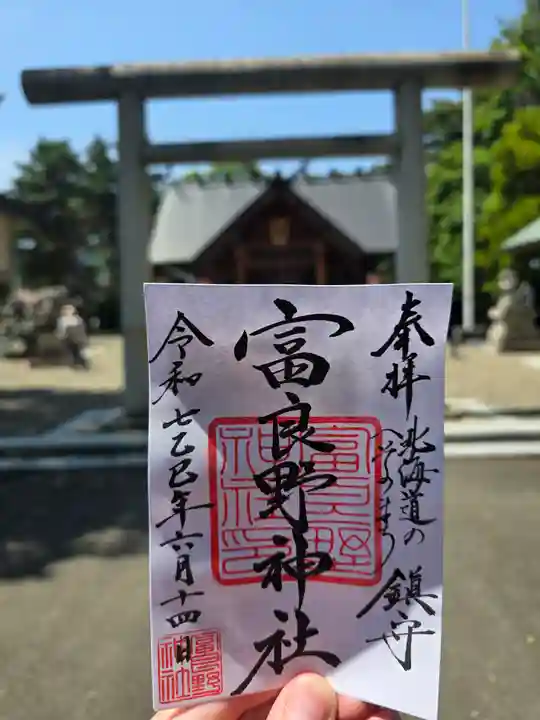 奉拝
北海道の
へそのまち
鎮守
富良野神社
富良野神社印
令和七乙巳年六月十四日
富良野神社